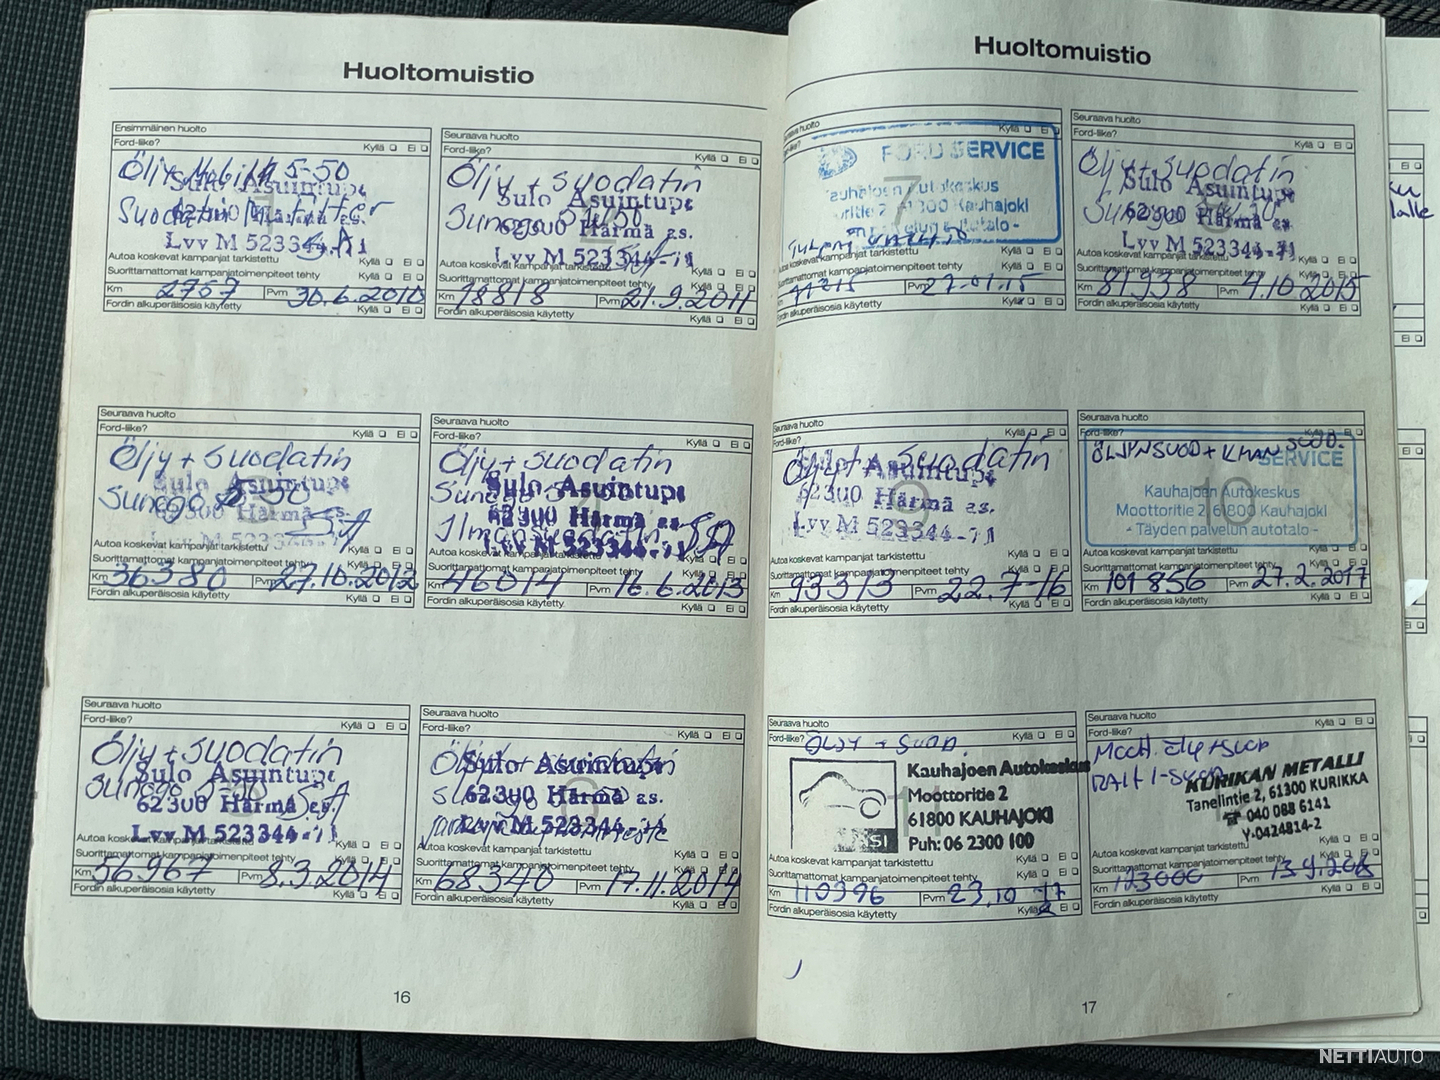 Huoltomuistio
Ensimmäinen huolto
Ford-liike?
Kyllä ❑ Ei ❑
Öljy Mobil 1 5-50
Sulo Asuintupa
62300 Härmä as.
Lvv M 523344-71
Autoa koskevat kampanjat tarkistettu
Kyllä ❑ Ei ❑
Suorittamattomat kampanjatoimenpiteet tehty
Kyllä ❑ Ei ❑
Km 2757 Pvm 30.6.2010
Fordin alkuperäisosia käytetty
Kyllä ❑ Ei ❑
Seuraava huolto
Ford-liike?
Kyllä ❑ Ei ❑
Öljy + suodatin
Sulo Asuintupa
62300 Härmä as.
Lvv M 523344-71
Autoa koskevat kampanjat tarkistettu
Kyllä ❑ Ei ❑
Suorittamattomat kampanjatoimenpiteet tehty
Kyllä ❑ Ei ❑
Km 18818 Pvm 21.9.2011
Fordin alkuperäisosia käytetty
Kyllä ❑ Ei ❑
Seuraava huolto
Ford-liike?
Kyllä ❑ Ei ❑
Öljy + suodatin
Sunego 5-50
Sulo Asuintupa
62300 Härmä as.
Lvv M 523344-71
Autoa koskevat kampanjat tarkistettu
Kyllä ❑ Ei ❑
Suorittamattomat kampanjatoimenpiteet tehty
Kyllä ❑ Ei ❑
Km 36380 Pvm 27.10.2012
Fordin alkuperäisosia käytetty
Kyllä ❑ Ei ❑
Seuraava huolto
Ford-liike?
Kyllä ❑ Ei ❑
Öljy + suodatin
Sulo Asuintupa
62300 Härmä as.
Lvv M 523344-71
Autoa koskevat kampanjat tarkistettu
Kyllä ❑ Ei ❑
Suorittamattomat kampanjatoimenpiteet tehty
Kyllä ❑ Ei ❑
Km 46014 Pvm 16.6.2013
Fordin alkuperäisosia käytetty
Kyllä ❑ Ei ❑
Seuraava huolto
Ford-liike?
Kyllä ❑ Ei ❑
Öljy + suodatin
Sulo Asuintupa
62300 Härmä as.
Lvv M 523344-71
Autoa koskevat kampanjat tarkistettu
Kyllä ❑ Ei ❑
Suorittamattomat kampanjatoimenpiteet tehty
Kyllä ❑ Ei ❑
Km 56967 Pvm 8.3.2014
Fordin alkuperäisosia käytetty
Kyllä ❑ Ei ❑
Seuraava huolto
Ford-liike?
Kyllä ❑ Ei ❑
Sulo Asuintupa
62300 Härmä as.
Lvv M 523344-71
Autoa koskevat kampanjat tarkistettu
Kyllä ❑ Ei ❑
Suorittamattomat kampanjatoimenpiteet tehty
Kyllä ❑ Ei ❑
Km 68340 Pvm 17.11.2014
Fordin alkuperäisosia käytetty
Kyllä ❑ Ei ❑
16
Huoltomuistio
Seuraava huolto
Ford-liike?
Kyllä ❑ Ei ❑
7
FORD SERVICE
Kauhajoen Autokeskus
Kauhajoki
Autoa koskevat kampanjat tarkistettu
Kyllä ❑ Ei ❑
Suorittamattomat kampanjatoimenpiteet tehty
Kyllä ❑ Ei ❑
Km 71215 Pvm 27.01.15
Fordin alkuperäisosia käytetty
Kyllä ❑ Ei ❑
Seuraava huolto
Ford-liike?
Kyllä ❑ Ei ❑
Öljy + suodatin
Sulo Asuintupa
62300 Härmä as.
Lvv M 523344-71
Autoa koskevat kampanjat tarkistettu
Kyllä ❑ Ei ❑
Suorittamattomat kampanjatoimenpiteet tehty
Kyllä ❑ Ei ❑
Km 81938 Pvm 4.10.2015
Fordin alkuperäisosia käytetty
Kyllä ❑ Ei ❑
Seuraava huolto
Ford-liike?
Kyllä ❑ Ei ❑
Öljy + Suodatin
Sulo Asuintupa
62300 Härmä as.
Lvv M 523344-71
Autoa koskevat kampanjat tarkistettu
Kyllä ❑ Ei ❑
Suorittamattomat kampanjatoimenpiteet tehty
Kyllä ❑ Ei ❑
Km 93313 Pvm 22.7-16
Fordin alkuperäisosia käytetty
Kyllä ❑ Ei ❑
Seuraava huolto
Ford-liike?
Kyllä ❑ Ei ❑
SUOD.
SERVICE
10
Kauhajoen Autokeskus
Moottoritie 2, 61800 Kauhajoki
- Täyden palvelun autotalo -
Autoa koskevat kampanjat tarkistettu
Kyllä ❑ Ei ❑
Suorittamattomat kampanjatoimenpiteet tehty
Kyllä ❑ Ei ❑
Km 101856 Pvm 27.2.2017
Fordin alkuperäisosia käytetty
Kyllä ❑ Ei ❑
Seuraava huolto
Ford-liike?
Kyllä ❑ Ei ❑
ÖLJY + SUOD.
11
Kauhajoen Autokeskus
Moottoritie 2
61800 KAUHAJOKI
Puh: 06 2300 100
Autoa koskevat kampanjat tarkistettu
Kyllä ❑ Ei ❑
Suorittamattomat kampanjatoimenpiteet tehty
Kyllä ❑ Ei ❑
Km 110396 Pvm 23.10.17
Fordin alkuperäisosia käytetty
Kyllä ❑ Ei ❑
Seuraava huolto
Ford-liike?
Kyllä ❑ Ei ❑
KURIKAN METALLI
Tanelintie 2, 61300 KURIKKA
☎ 040 088 6141
Y-0424814-2
Autoa koskevat kampanjat tarkistettu
Kyllä ❑ Ei ❑
Suorittamattomat kampanjatoimenpiteet tehty
Kyllä ❑ Ei ❑
Km 123000 Pvm
Fordin alkuperäisosia käytetty
Kyllä ❑ Ei ❑
17
NETTIAUTO